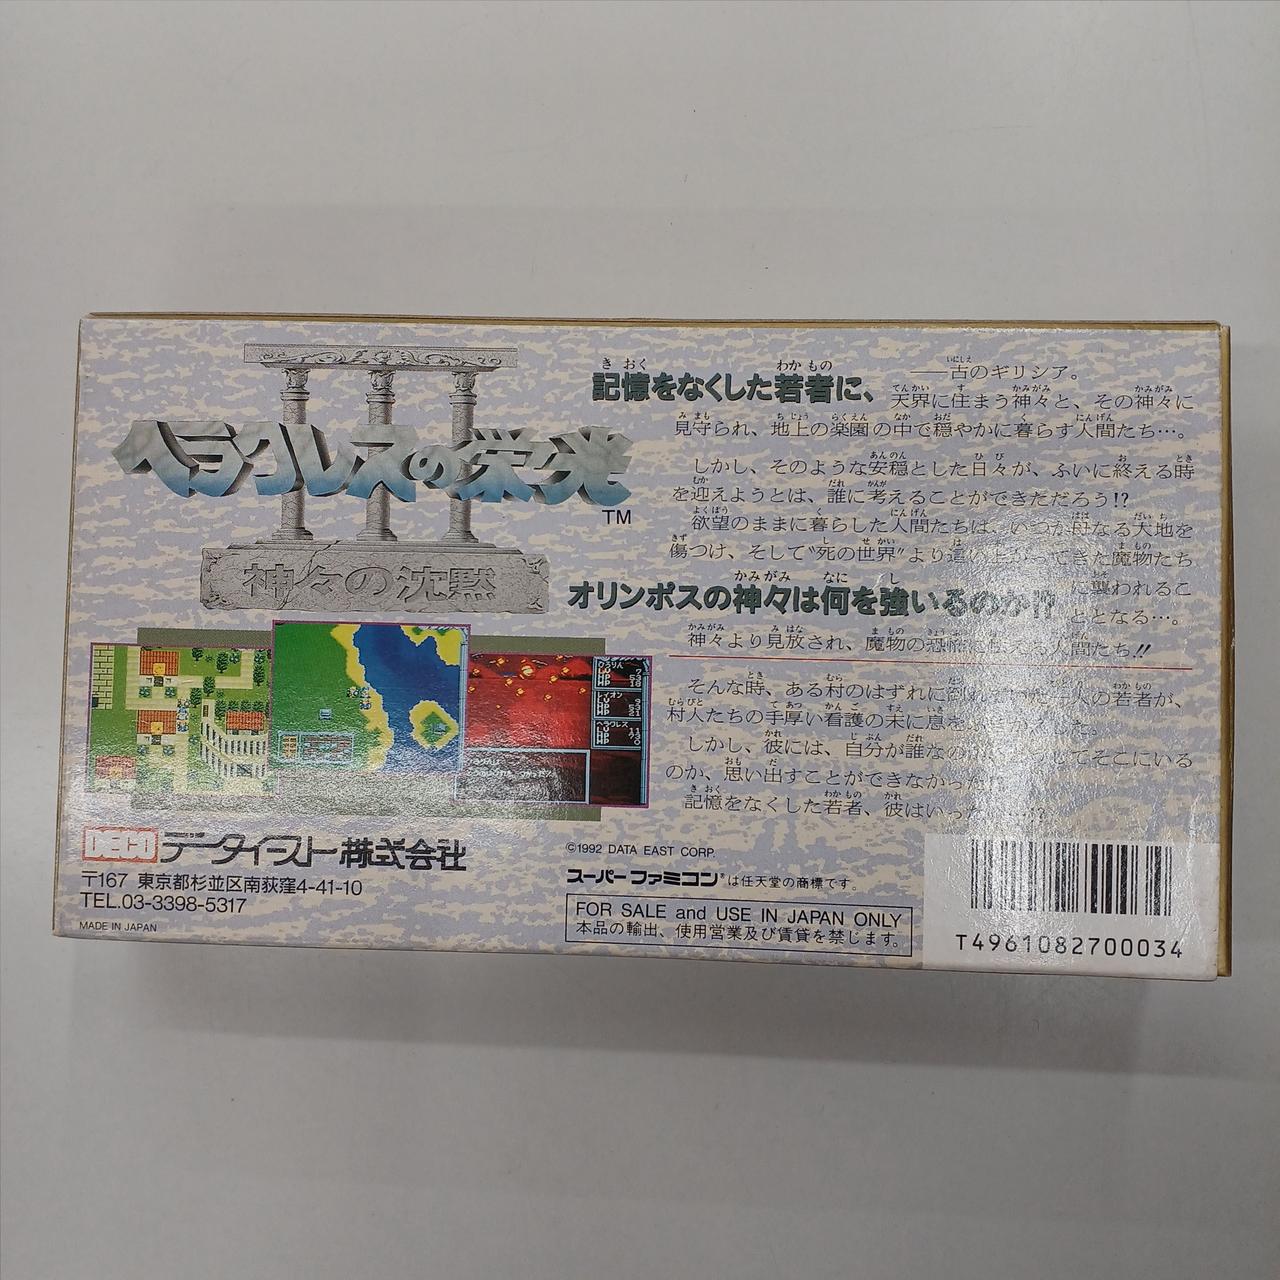 ヘラクレスの栄光
TM
III
神々の沈黙
記憶をなくした若者に、
オリンポスの神々は何を強いるのか!?
――古のギリシア。
天界に住まう神々と、その神々に
見守られ、地上の楽園の中で穏やかに暮らす人間たち…。
しかし、そのような安穏とした日々が、ふいに終える時
を迎えようとは、誰に考えることができただろう!?
欲望のままに暮らした人間たちは、いつか母なる大地を
傷つけ、そして“死の世界”より這い上がってきた魔物たち
に襲われるこ
ととなる…。
神々より見放され、魔物の恐怖に 人間たち!!
そんな時、ある村のはずれに 人の若者が、
村人たちの手厚い看護の末に息を
しかし、彼には、自分が誰なのか してそこにいる
のか、思い出すことができなかった
記憶をなくした若者、彼はいった …!?
ひろりん
レイオン
ヘラクレス
DECO データイースト株式会社
〒167 東京都杉並区南荻窪4-41-10
TEL.03-3398-5317
MADE IN JAPAN
©1992 DATA EAST CORP.
スーパーファミコン®は任天堂の商標です。
FOR SALE and USE IN JAPAN ONLY
本品の輸出、使用営業及び賃貸を禁じます。
T4961082700034